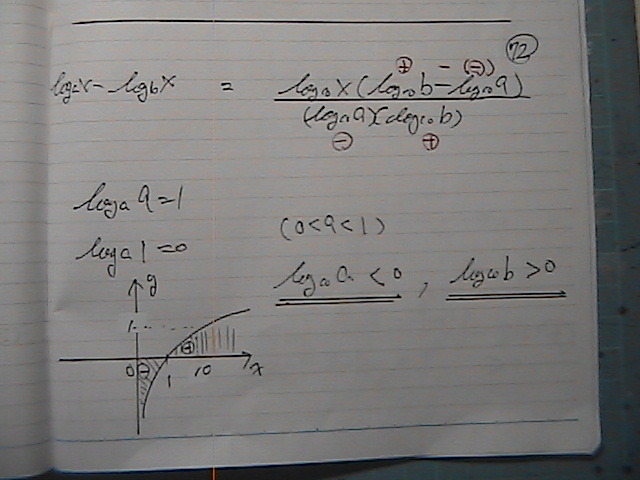 72
⊕ - (⊖)
logax - logbx = log10x(log10b - log10a) / (log10a)(log10b)
⊖ ⊕
loga a = 1
(0<a<1)
loga 1 = 0
log10 a < 0 , log10 b > 0
y
1
⊕
0 ⊖ 1 10 x